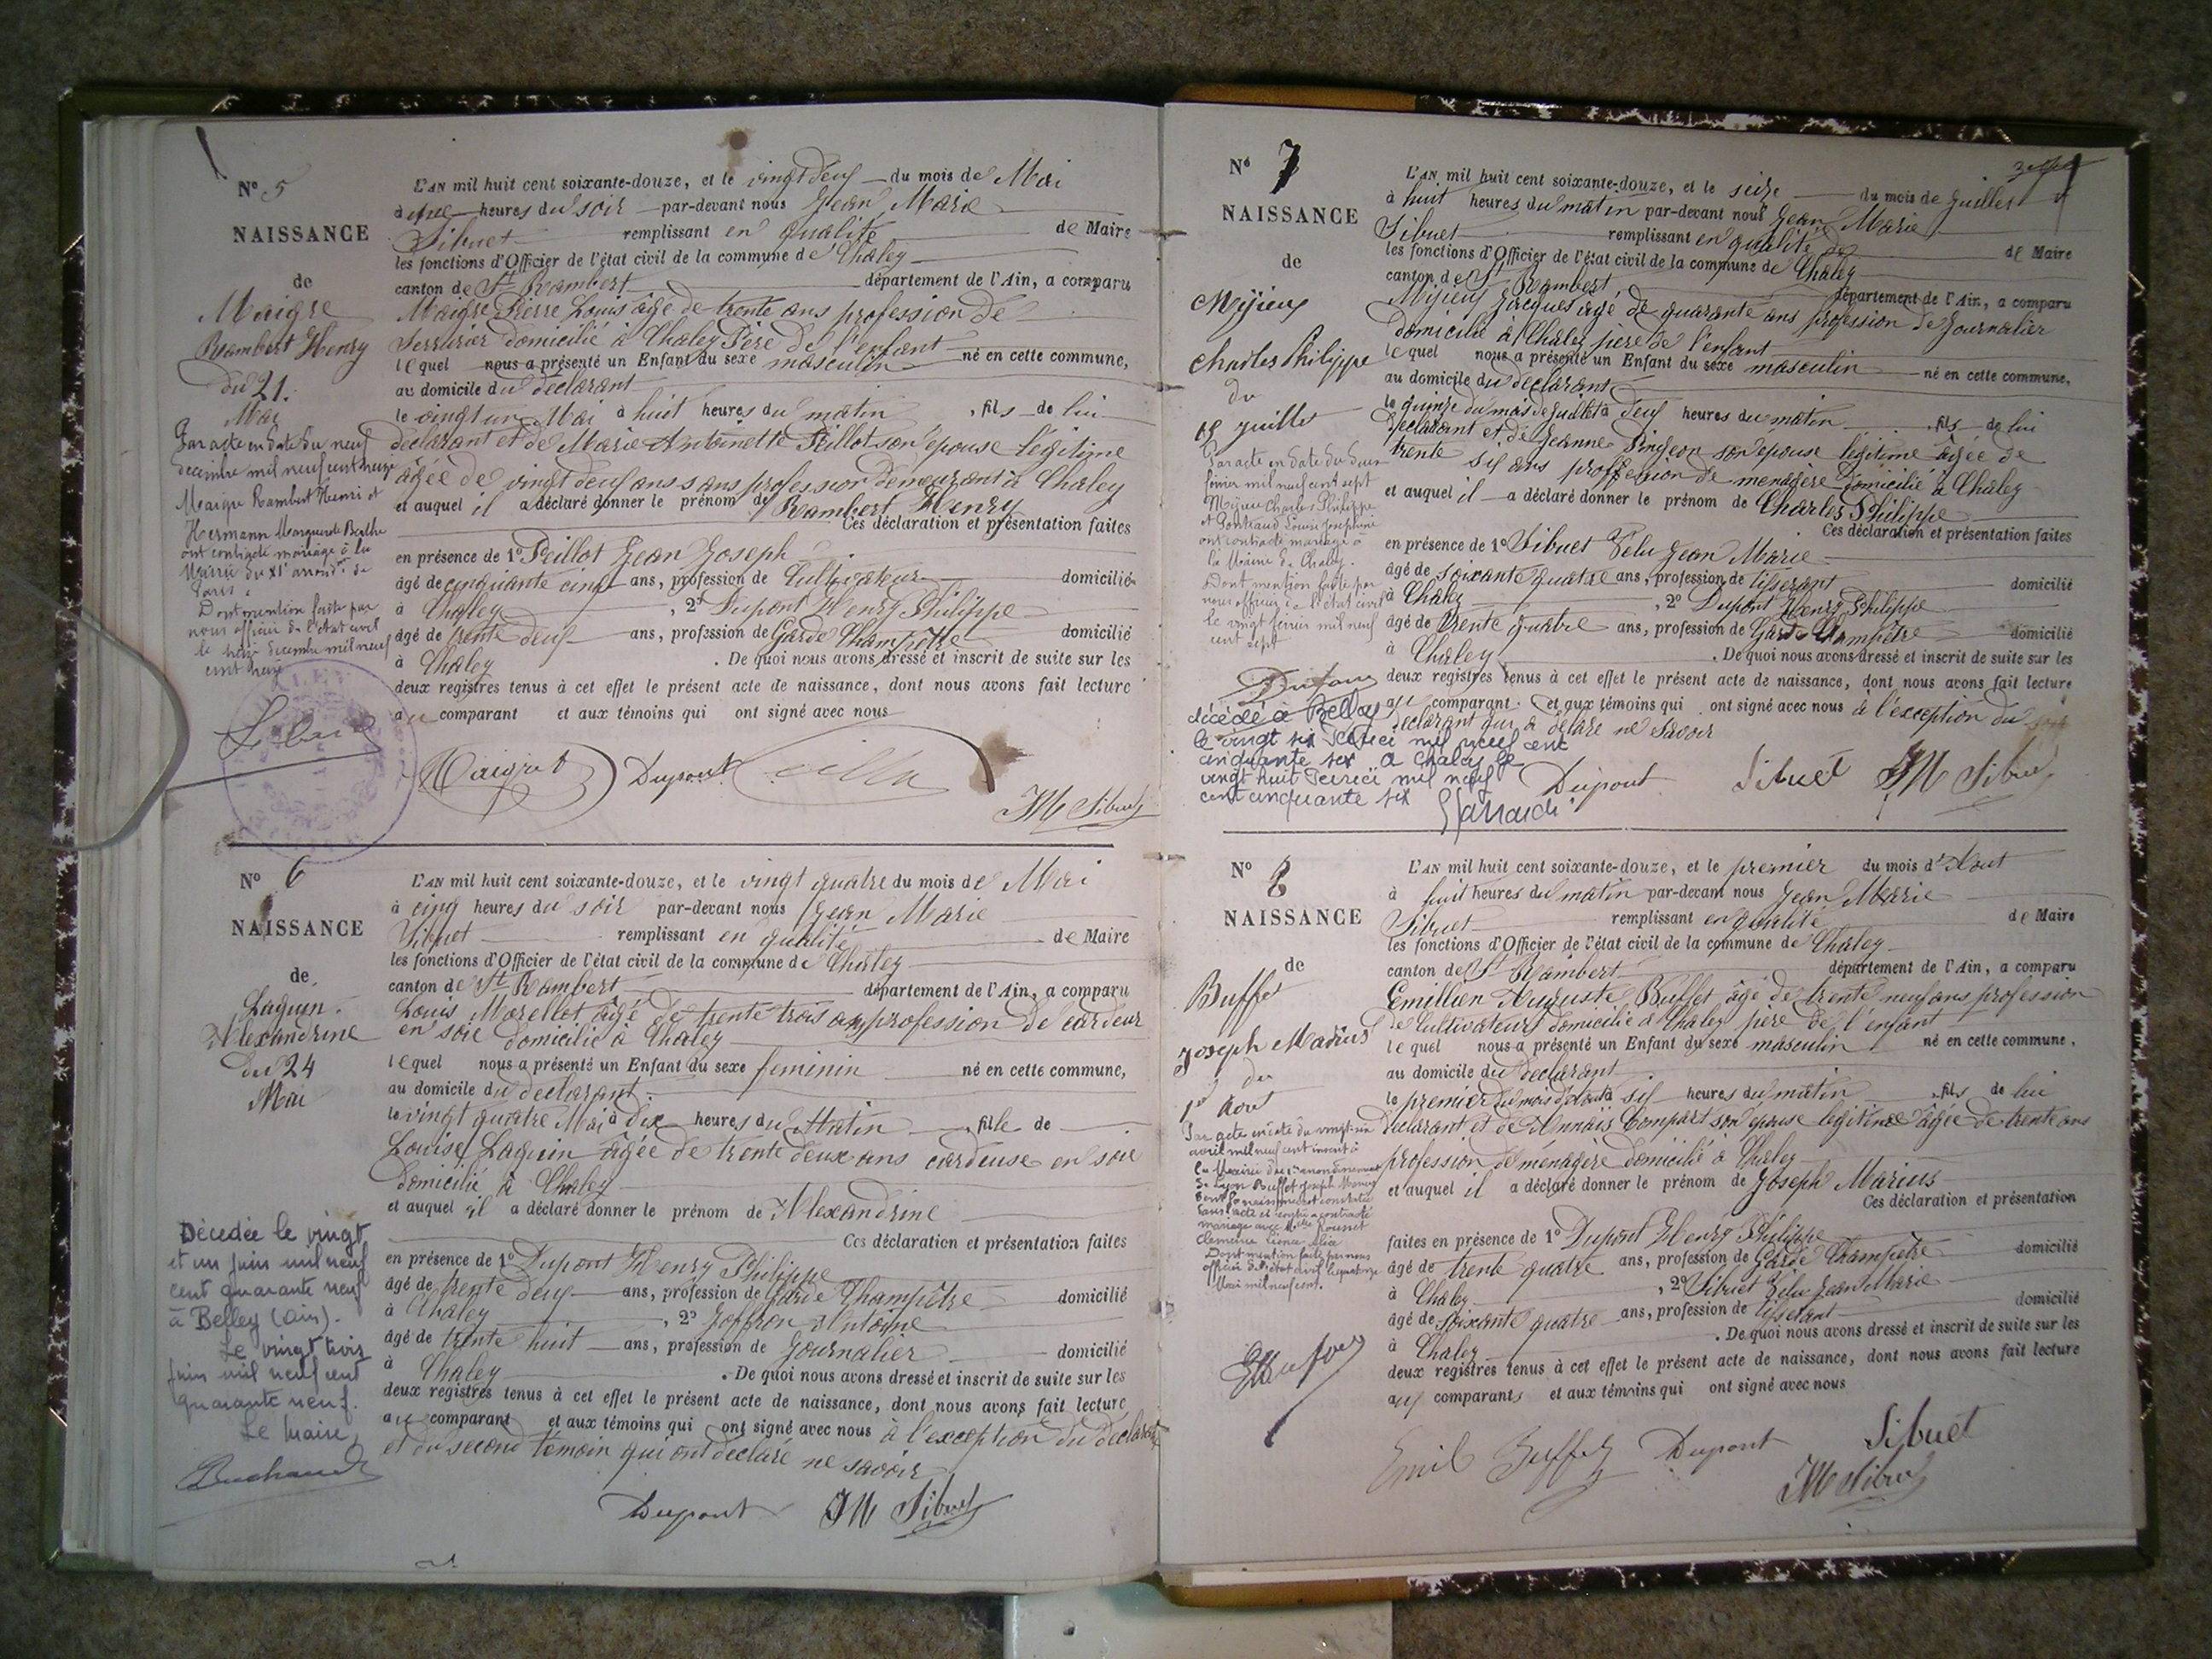 N° 5
NAISSANCE
de
Maigre
Rambert Henry
du 21.
Mai
Par acte en date du neuf
décembre mil neuf cent treize
Maigre Rambert Henri et
Hermann Marguerite Berthe
ont contracté mariage à la
Mairie du XIe arrondt de
Paris.
Dont mention faite par
nous officier de l'état civil
le treize décembre mil neuf
cent treize
Sibuet
L'AN mil huit cent soixante-douze, et le vingt deux du mois de Mai
à une heures du soir par-devant nous Jean Marie
Sibuet remplissant en qualité de Maire
les fonctions d'Officier de l'état civil de la commune de Chaley
canton de St Rambert département de l'Ain, a comparu
Maigre Pierre Louis âgé de trente ans profession de
Serrurier domicilié à Chaley Père de l'enfant
lequel nous a présenté un Enfant du sexe masculin né en cette commune,
au domicile du déclarant
le vingt un Mai à huit heures du matin, fils de lui
déclarant et de Marie Antoinette Peillot son épouse légitime
âgée de vingt deux ans sans profession demeurant à Chaley
et auquel il a déclaré donner le prénom de Rambert Henry
Ces déclaration et présentation faites
en présence de 1° Peillot Jean Joseph
âgé de cinquante cinq ans, profession de Cultivateur domicilié
à Chaley, 2° Dupont Henry Philippe
âgé de trente deux ans, profession de Garde Champêtre domicilié
à Chaley. De quoi nous avons dressé et inscrit de suite sur les
deux registres tenus à cet effet le présent acte de naissance, dont nous avons fait lecture
au comparant et aux témoins qui ont signé avec nous
Dupont
JM Sibuet
N° 6
NAISSANCE
de
Laguin
Alexandrine
du 24
Mai
Décédée le vingt
et un juin mil neuf
cent quarante neuf
à Belley (Ain).
Le vingt trois
juin mil neuf cent
quarante neuf.
Le Maire,
L'AN mil huit cent soixante-douze, et le vingt quatre du mois de Mai
à cinq heures du soir par-devant nous Jean Marie
Sibuet remplissant en qualité de Maire
les fonctions d'Officier de l'état civil de la commune de Chaley
canton de St Rambert département de l'Ain, a comparu
Louis Morellot âgé de trente trois ans profession de cardeur
en soie domicilié à Chaley
lequel nous a présenté un Enfant du sexe feminin né en cette commune,
au domicile du déclarant.
le vingt quatre Mai à dix heures du Matin, fille de
Louise Laguin âgée de trente deux ans cardeuse en soie
domicilié à Chaley
et auquel il a déclaré donner le prénom de Alexandrine
Ces déclaration et présentation faites
en présence de 1° Dupont Henry Philippe
âgé de trente deux ans, profession de Garde Champêtre domicilié
à Chaley, 2° Joffron Antoine
âgé de trente huit ans, profession de Journalier domicilié
à Chaley. De quoi nous avons dressé et inscrit de suite sur les
deux registres tenus à cet effet le présent acte de naissance, dont nous avons fait lecture
au comparant et aux témoins qui ont signé avec nous à l'exception du déclarant
et du second témoin qui ont déclaré ne savoir
Dupont JM Sibuet
N° 7
NAISSANCE
de
Mijieux
Charles Philippe
du
15 juillet
Par acte en date du deux
février mil neuf cent sept
Mijieu Charles Philippe
ont contracté mariage à
la Mairie de Chaley.
Dont mention faite par
nous officier de l'état civil
le vingt février mil neuf
cent sept
décédé à Belley
le vingt six mil neuf cent
cinquante six à Chaley le
vingt huit mil neuf
cent cinquante six
L'AN mil huit cent soixante-douze, et le seize du mois de Juillet
à huit heures du matin par-devant nous Jean Marie
Sibuet remplissant en qualité de de Maire
les fonctions d'Officier de l'état civil de la commune de Chaley
canton de St Rambert, département de l'Ain, a comparu
Mijieux Jacques âgé de quarante ans profession de Journalier
domicilié à Chaley père de l'enfant
lequel nous a présenté un Enfant du sexe masculin né en cette commune,
au domicile du déclarant
le quinze du mois de Juillet à deux heures du matin, fils de lui
déclarant et de Jeanne Pingeon son épouse légitime âgée de
trente six ans proffession de menagère domicilié à Chaley
et auquel il a déclaré donner le prénom de Charles Philippe
Ces déclaration et présentation faites
en présence de 1° Sibuet Velu Jean Marie
âgé de soixante quatre ans, profession de tisserant domicilié
à Chaley, 2° Dupont Henry Philippe
âgé de trente quatre ans, profession de Garde Champêtre domicilié
à Chaley. De quoi nous avons dressé et inscrit de suite sur les
deux registres tenus à cet effet le présent acte de naissance, dont nous avons fait lecture
au comparant et aux témoins qui ont signé avec nous à l'exception du
déclarant qui a déclaré ne savoir
Dupont Sibuet JM Sibuet
N° 8
NAISSANCE
de
Buffet
Joseph Marius
du
1er Aout
Par acte en date du vingt-un
avril mil neuf cent inscrit à
la Mairie du 1er arrondissement
de Lyon Buffet Joseph Marius
dont la naissance est constatée
dans l'acte ci-contre a contracté
mariage avec
Dont mention faite par nous
officier de l'état civil le quatorze
Mai mil neuf cent.
L'AN mil huit cent soixante-douze, et le premier du mois d'Aout
à huit heures du matin par-devant nous Jean Marie
Sibuet remplissant en qualité de Maire
les fonctions d'Officier de l'état civil de la commune de Chaley
canton de St Rambert département de l'Ain, a comparu
Emillien Auguste Buffet âgé de trente neuf ans profession
de Cultivateur domicilié à Chaley père de l'enfant
lequel nous a présenté un Enfant du sexe masculin né en cette commune,
au domicile du déclarant
le premier du mois d'Aout à six heures du matin, fils de lui
déclarant et de Annaïs Compart son épouse légitime âgée de trente ans
profession de menagère domicilié à Chaley
et auquel il a déclaré donner le prénom de Joseph Marius
Ces déclaration et présentation
faites en présence de 1° Dupont Henry Philippe
âgé de trente quatre ans, profession de Garde Champêtre domicilié
à Chaley, 2° Sibuet Velu Jean Marie
âgé de soixante quatre ans, profession de tisserant domicilié
à Chaley. De quoi nous avons dressé et inscrit de suite sur les
deux registres tenus à cet effet le présent acte de naissance, dont nous avons fait lecture
aux comparants et aux témoins qui ont signé avec nous
Emil Buffet Dupont Sibuet
JM Sibuet